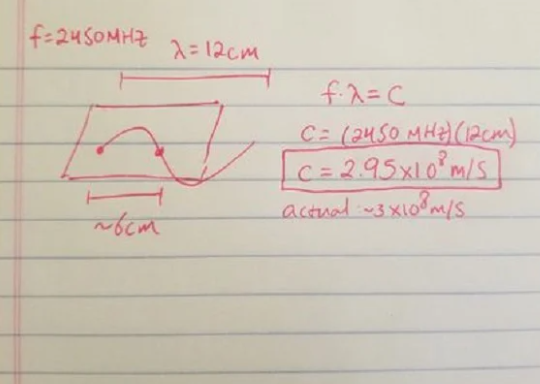 f=2450MHz
λ=12cm
~6cm
f·λ=C
C=(2450 MHz)(12cm)
C=2.95x10⁸ m/s
actual ~3x10⁸m/s